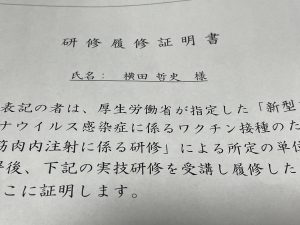 研修履修証明書
氏名： 横田 哲史 様
表記の者は、厚生労働省が指定した「新型
ナウイルス感染症に係るワクチン接種のた
筋肉内注射に係る研修」による所定の単位
後、下記の実技研修を受講し履修した
こに証明します。